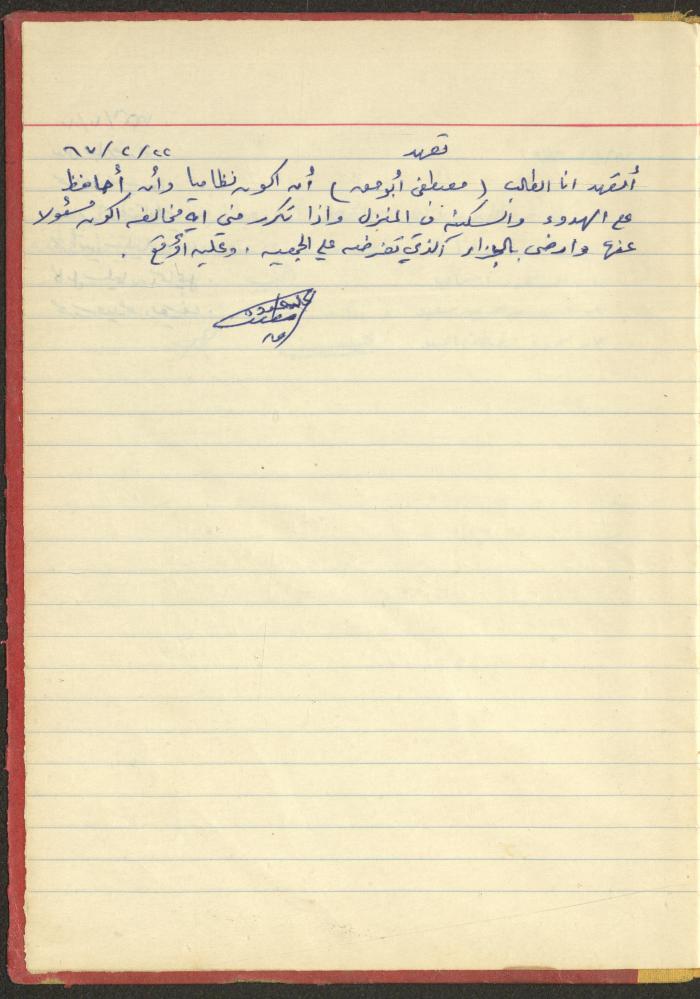 تعهد ٢٢/٢/٦٧
أتعهد انا الطالب (مصطفى أبو حصه) أن اكون نظاميا وأن أحافظ
على الهدوء والسكينة في المنزل واذا تكرر مني اية مخالفه اكون مسؤولا
عنها وارضى بالجزاء الذي تفرضه علي الجمعيه . وعليه اوقع .